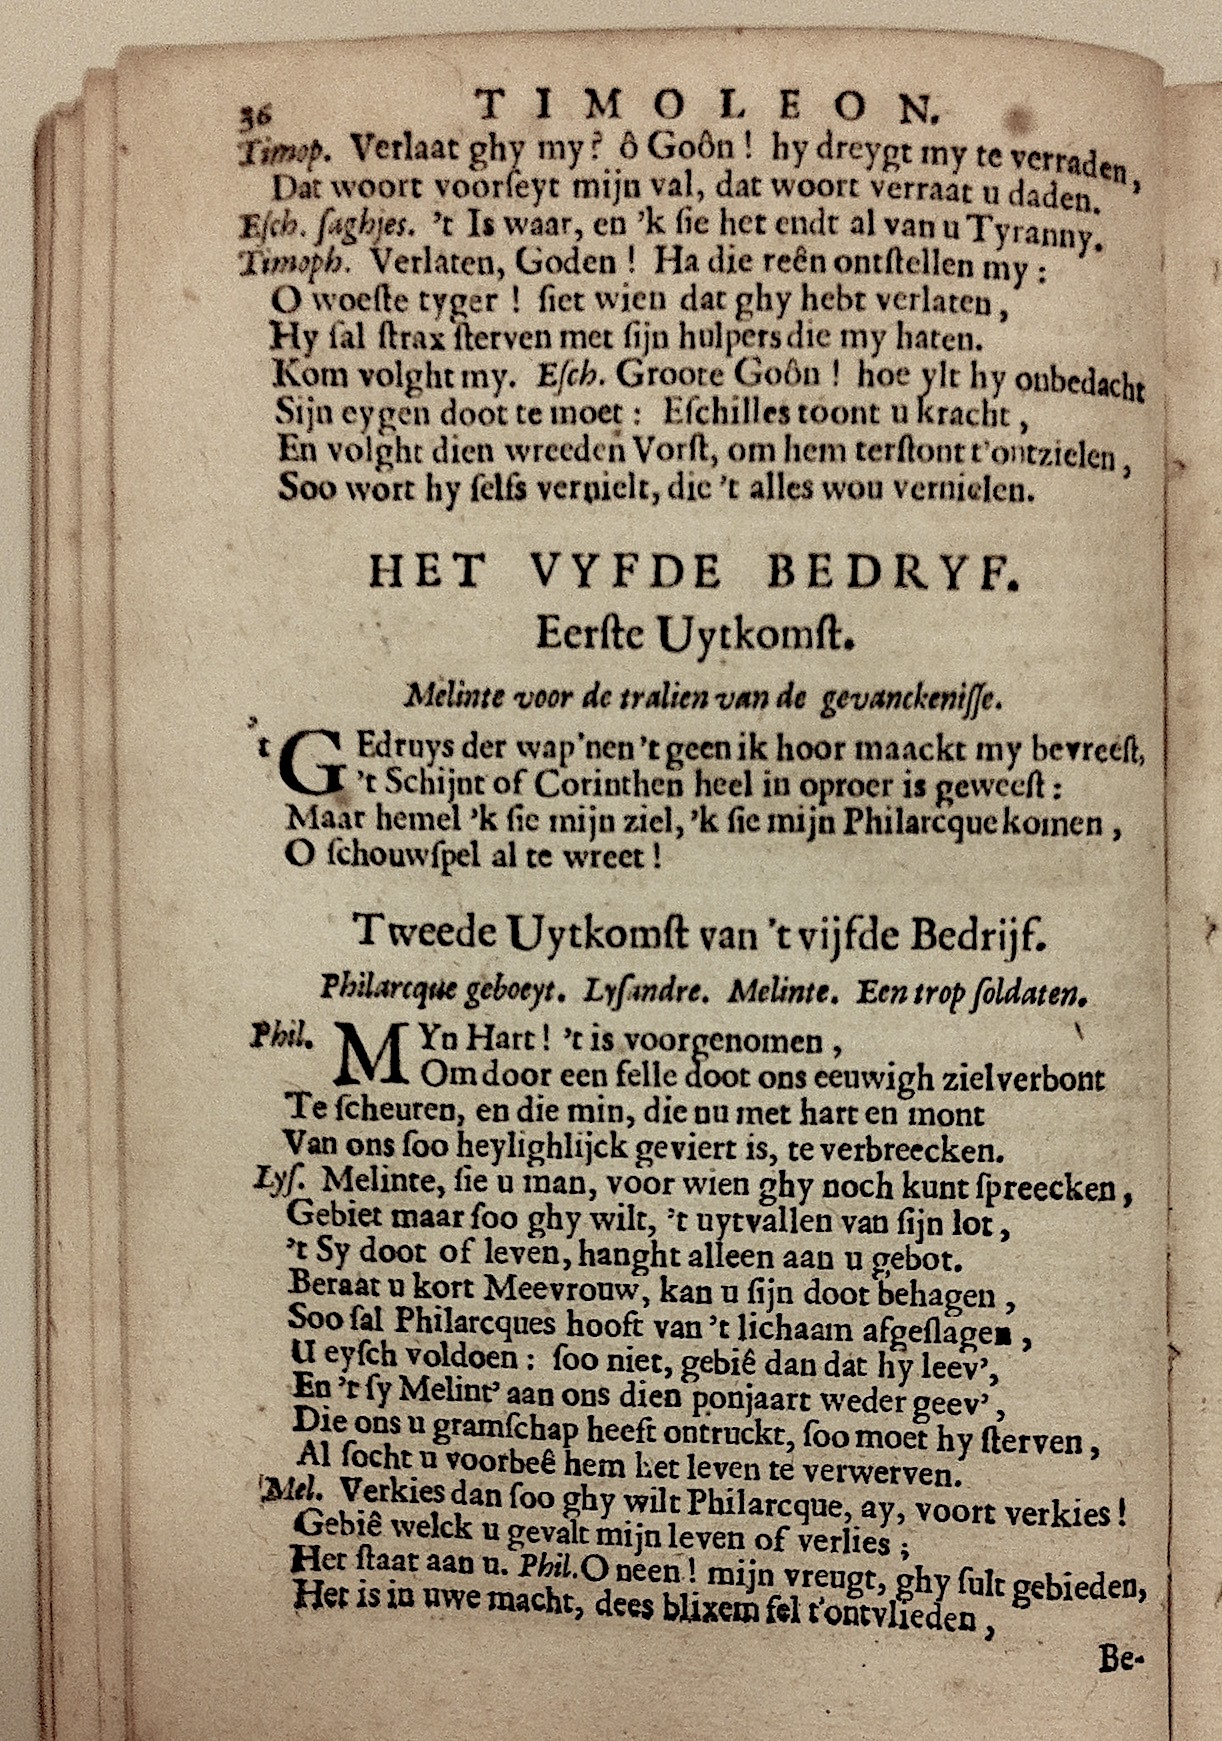 36 TIMOLEON.
Timop. Verlaat ghy my? ô Goôn! hy dreygt my te verraden,
Dat woort voorſeyt mijn val, dat woort verraat u daden.
Eſch. ſaghjes. 't Is waar, en 'k ſie het endt al van u Tyranny.
Timoph. Verlaten, Goden! Ha die reên ontſtellen my:
O woeſte tyger! ſiet wien dat ghy hebt verlaten,
Hy ſal ſtrax ſterven met ſijn hulpers die my haten.
Kom volght my. Eſch. Groote Goôn! hoe ylt hy onbedacht
Sijn eygen doot te moet: Eſchilles toont u kracht,
En volght dien wreeden Vorſt, om hem terſtont t'ontzielen,
Soo wort hy ſelfs vernielt, die 't alles wou vernielen.
HET VYFDE BEDRYF.
Eerſte Uytkomſt.
Melinte voor de tralien van de gevanckeniſſe.
't GEdruys der wap'nen 't geen ik hoor maackt my bevreeſt,
't Schijnt of Corinthen heel in oproer is geweeſt:
Maar hemel 'k ſie mijn ziel, 'k ſie mijn Philarcque komen,
O ſchouwſpel al te wreet!
Tweede Uytkomſt van 't vijfde Bedrijf.
Philarcque geboeyt. Lyſandre. Melinte. Een trop ſoldaten.
Phil. MYn Hart! 't is voorgenomen,
Om door een felle doot ons eeuwigh zielverbont
Te ſcheuren, en die min, die nu met hart en mont
Van ons ſoo heylighlijck geviert is, te verbreecken.
Lyſ. Melinte, ſie u man, voor wien ghy noch kunt ſpreecken,
Gebiet maar ſoo ghy wilt, 't uytvallen van ſijn lot,
't Sy doot of leven, hanght alleen aan u gebot.
Beraat u kort Meevrouw, kan u ſijn doot behagen,
Soo ſal Philarcques hooft van 't lichaam afgeſlagen,
U eyſch voldoen: ſoo niet, gebiê dan dat hy leev',
En 't ſy Melint' aan ons dien ponjaart weder geev',
Die ons u gramſchap heeft ontruckt, ſoo moet hy ſterven,
Al ſocht u voorbeê hem het leven te verwerven.
Mel. Verkies dan ſoo ghy wilt Philarcque, ay, voort verkies!
Gebiê welck u gevalt mijn leven of verlies;
Het ſtaat aan u. Phil. O neen! mijn vreugt, ghy ſult gebieden,
Het is in uwe macht, dees blixem fel t'ontvlieden,
Be-